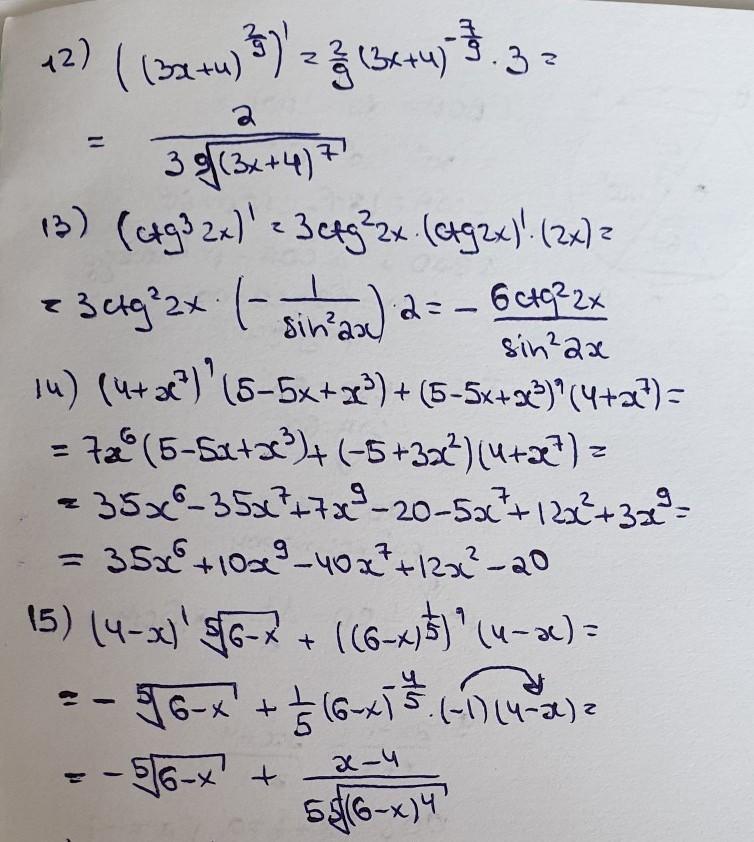 12) ((3x+4)^{2/9})' = 2/9 (3x+4)^{-7/9} · 3 =
= 2 / (3 ⁹√((3x+4)^7))
13) (ctg³ 2x)' = 3ctg² 2x · (ctg 2x)' · (2x) =
= 3ctg² 2x · (- 1 / sin² 2x) · 2 = - 6ctg² 2x / sin² 2x
14) (4+x⁷)' (5-5x+x³) + (5-5x+x³)' (4+x⁷) =
= 7x⁶ (5-5x+x³) + (-5+3x²)(4+x⁷) =
= 35x⁶ - 35x⁷ + 7x⁹ - 20 - 5x⁷ + 12x² + 3x⁹ =
= 35x⁶ + 10x⁹ - 40x⁷ + 12x² - 20
15) (4-x)' ⁵√(6-x) + ((6-x)^{1/5})' (4-x) =
= - ⁵√(6-x) + 1/5 (6-x)^{-4/5} · (-1)(4-x) =
= - ⁵√(6-x) + (x-4) / (5 ⁵√((6-x)⁴))